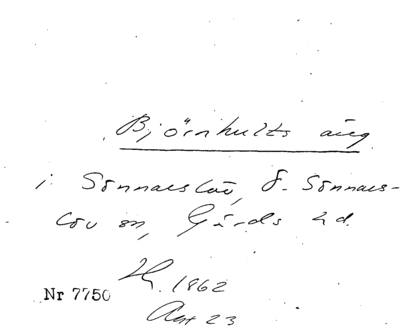 Björnhults äng
i Sönnarslöv, Ö. Sönnars-
löv sn, Gärds hd.
H. 1862
Nr 7750
Akt 23